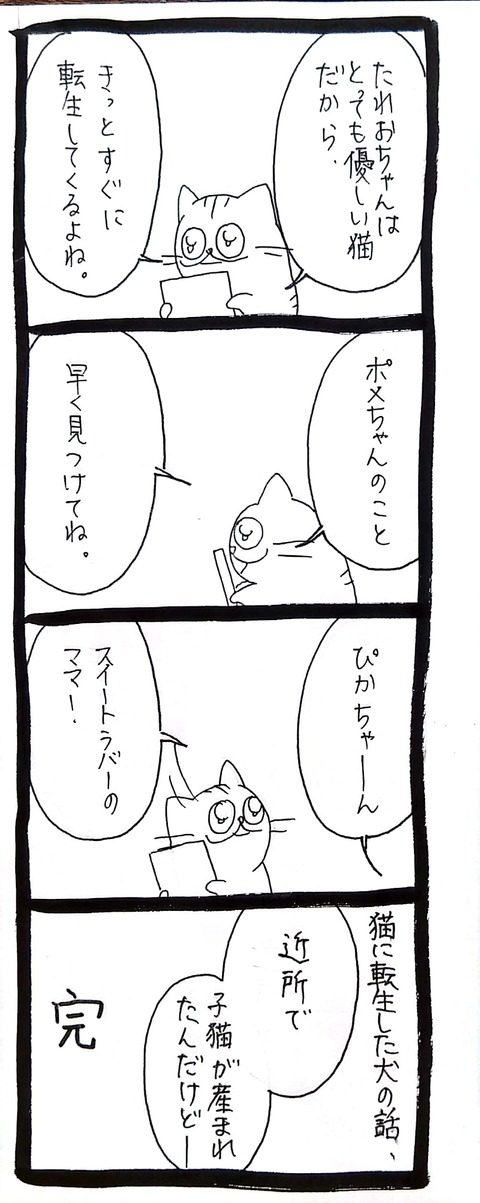 たれおちゃんは
とっても優しい猫
だから、
きっとすぐに
転生してくるよね。
ポメちゃんのこと
早く見つけてね。
ぴかちゃーん
スイートラバーの
ママー！
猫に転生した犬の話、
近所で
子猫が産まれ
たんだけどー
完